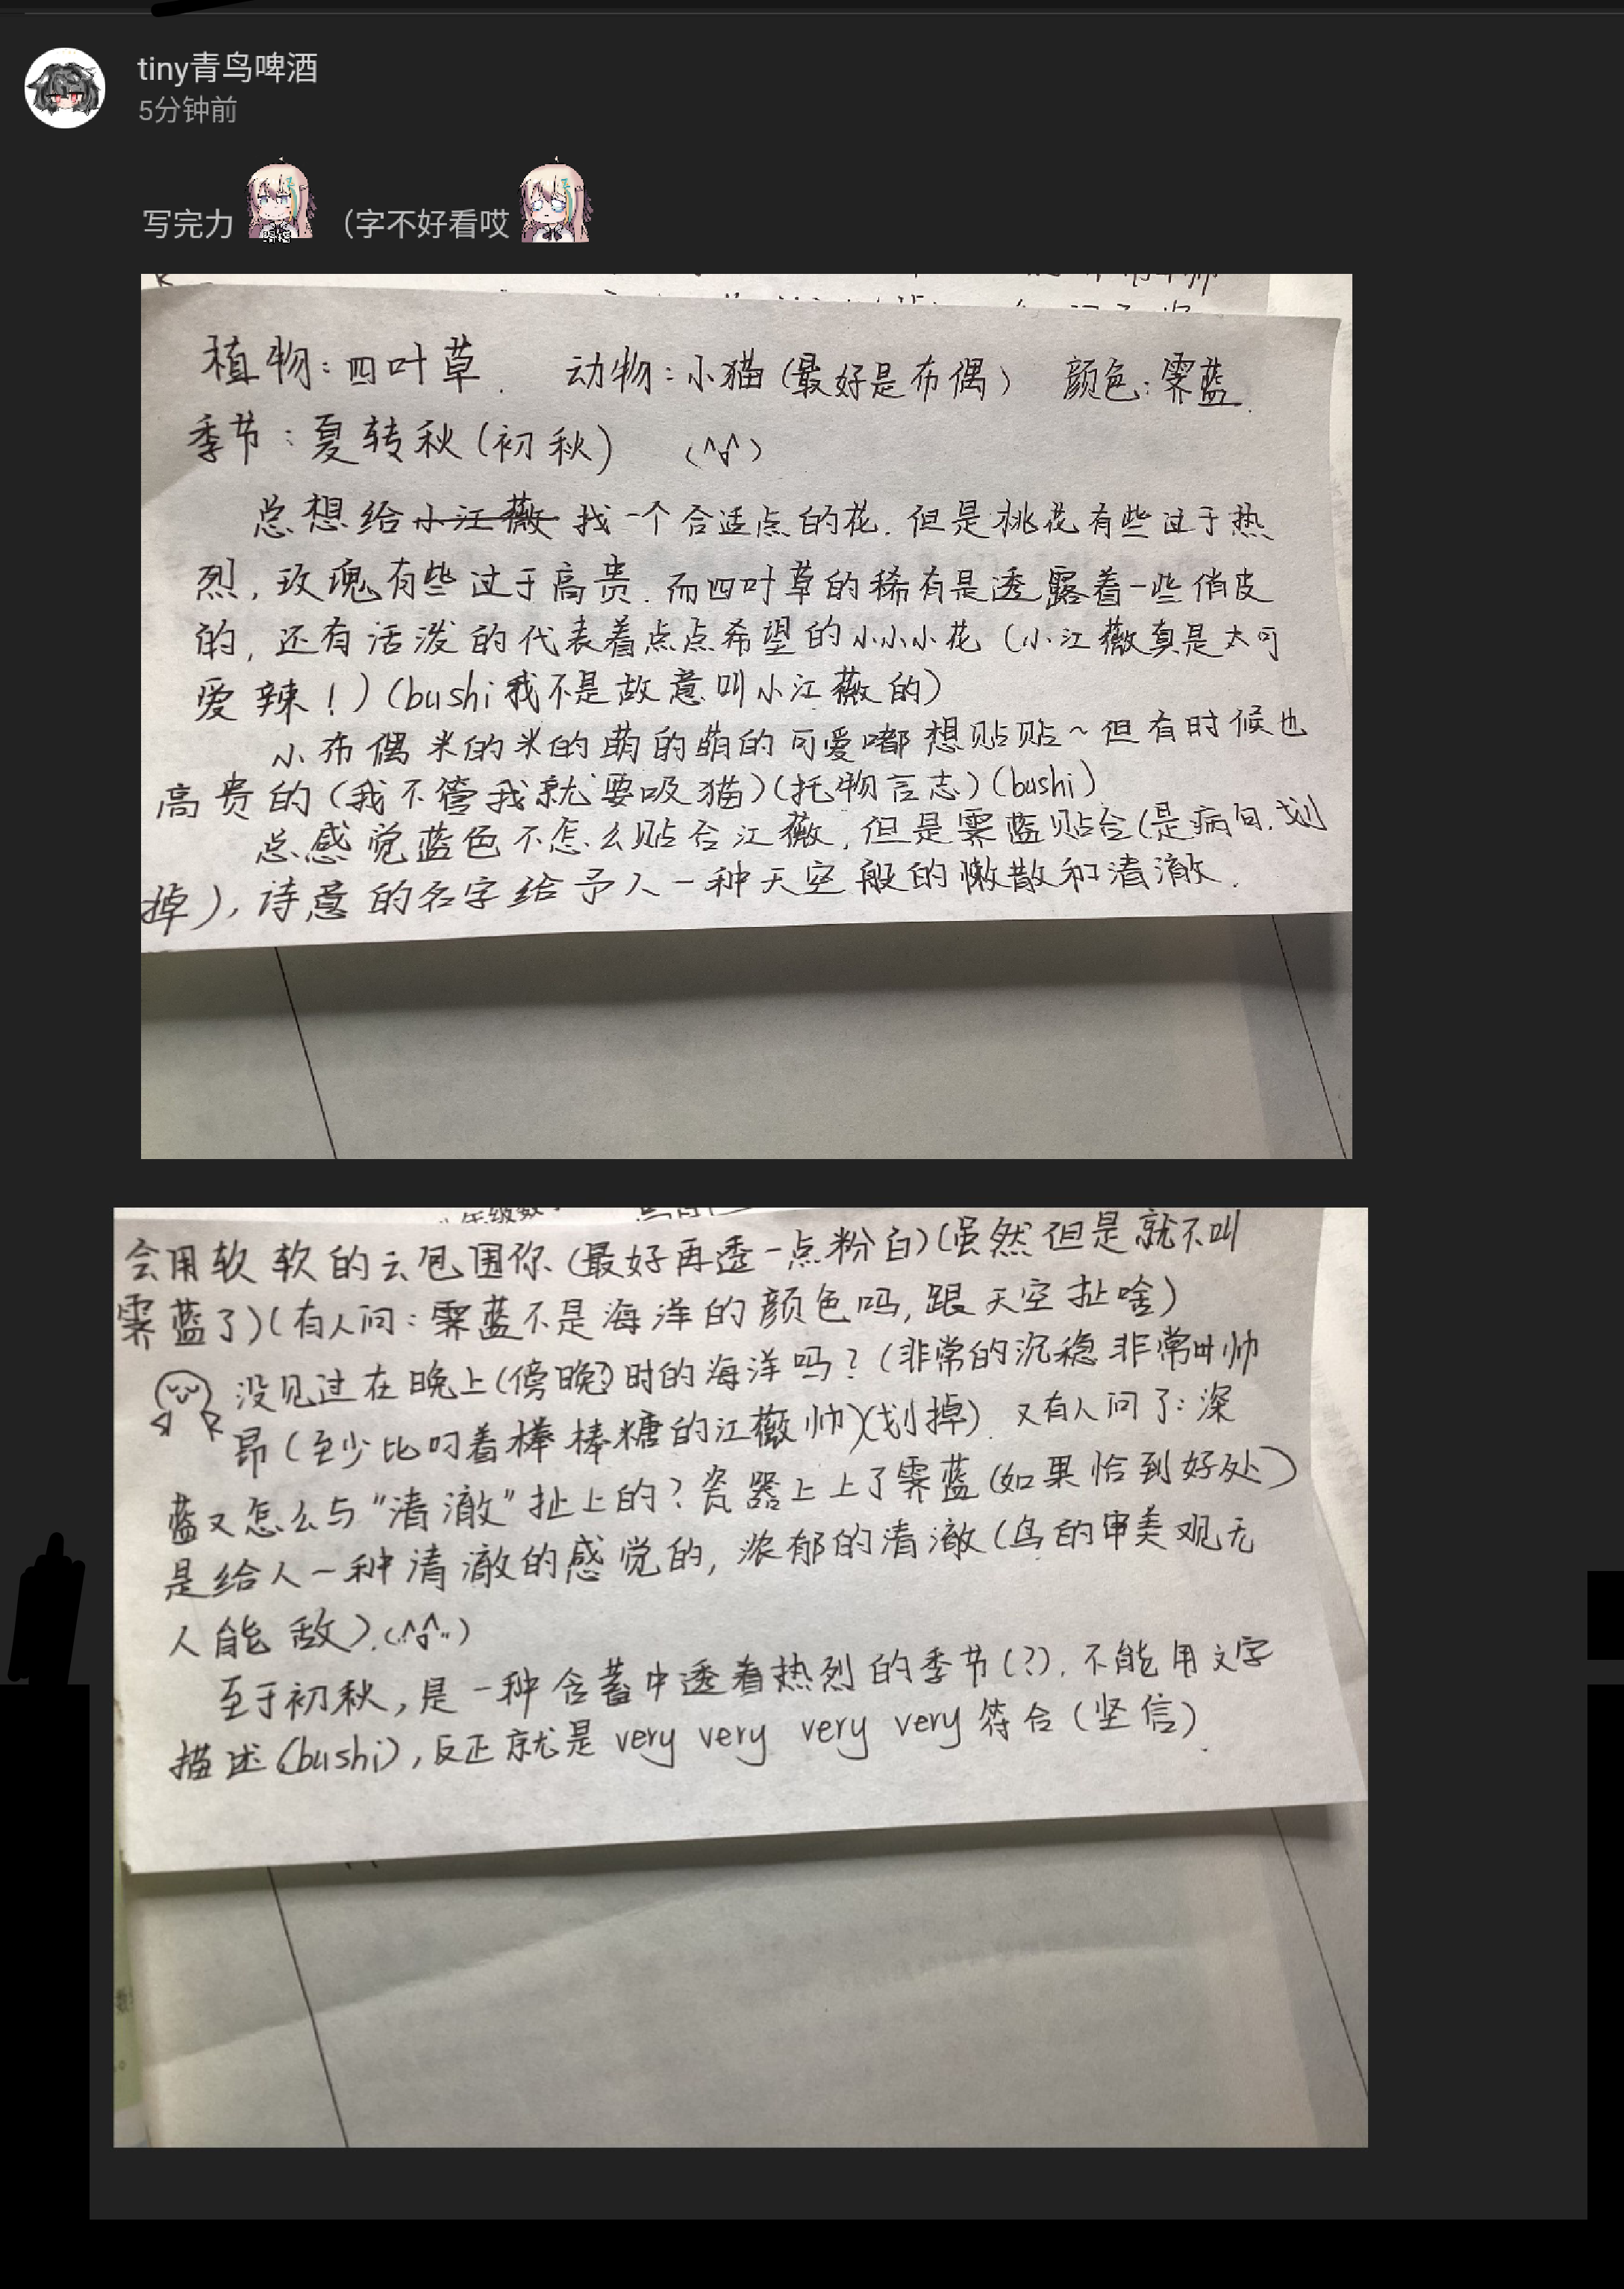 tiny青鸟啤酒
5分钟前
写完力 （字不好看哎
植物：四叶草. 动物：小猫（最好是布偶） 颜色：霁蓝.
季节：夏转秋（初秋）
总想给小江薇找一个合适点的花. 但是桃花有些过于热
烈, 玫瑰有些过于高贵. 而四叶草的稀有是透露着一些俏皮
的, 还有活泼的代表着点点希望的小小小花（小江薇真是太可
爱辣！）（bushi 我不是故意叫小江薇的）
小布偶米的米的萌的萌的可爱嘟想贴贴～但有时候也
高贵的（我不管我就要吸猫）（托物言志）（bushi）
总感觉蓝色不怎么贴合江薇, 但是霁蓝贴合（是病句. 划
掉）, 诗意的名字给予人一种天空般的懒散和清澈.
会用软软的云包围你（最好再透一点粉白）（虽然但是就不叫
霁蓝了）（有人问：霁蓝不是海洋的颜色吗, 跟天空扯啥）
没见过在晚上（傍晚?）时的海洋吗？（非常的沉稳非常帅
昂（至少比叼着棒棒糖的江薇帅）（划掉）. 又有人问了：深
蓝又怎么与"清澈"扯上的？瓷器上上了霁蓝（如果恰到好处）
是给人一种清澈的感觉的, 浓郁的清澈（鸟的审美观无
人能敌）.
至于初秋, 是一种含蓄中透着热烈的季节(?). 不能用文字
描述（bushi）, 反正就是 very very very very 符合（坚信）.